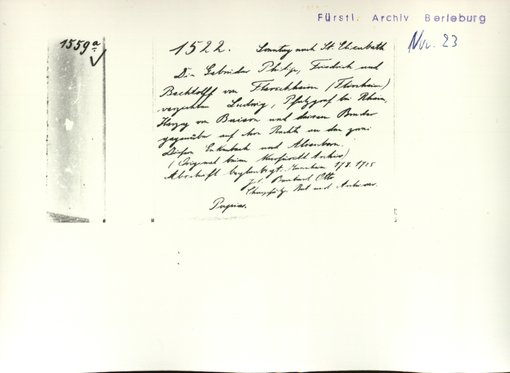 Fürstl. Archiv Berleburg
Nr. 23
1559a
1522. Sonntag nach St. Elisabeth
Die Gebrüder Philips, Friedrich und
Bechtolff von Flerssheim (Florsheim)
verzichten Ludwig, Pfalzgraf bei Rhein,
Herzog von Baiern und dessen Bruder
gegenüber auf ihre Rechte an den zwei
Dörfern Enkenbach und Alsenborn.
(Original beim Kurfürstl. Archiv)
Abschrift beglaubigt. Mannheim
Otto
und Archivar.
Papier.